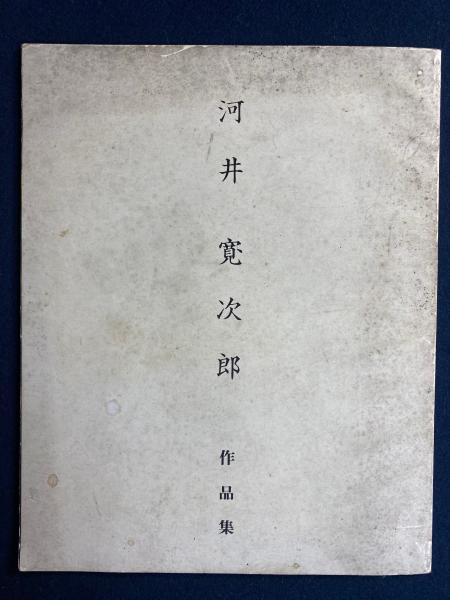 河井寛次郎
作品集